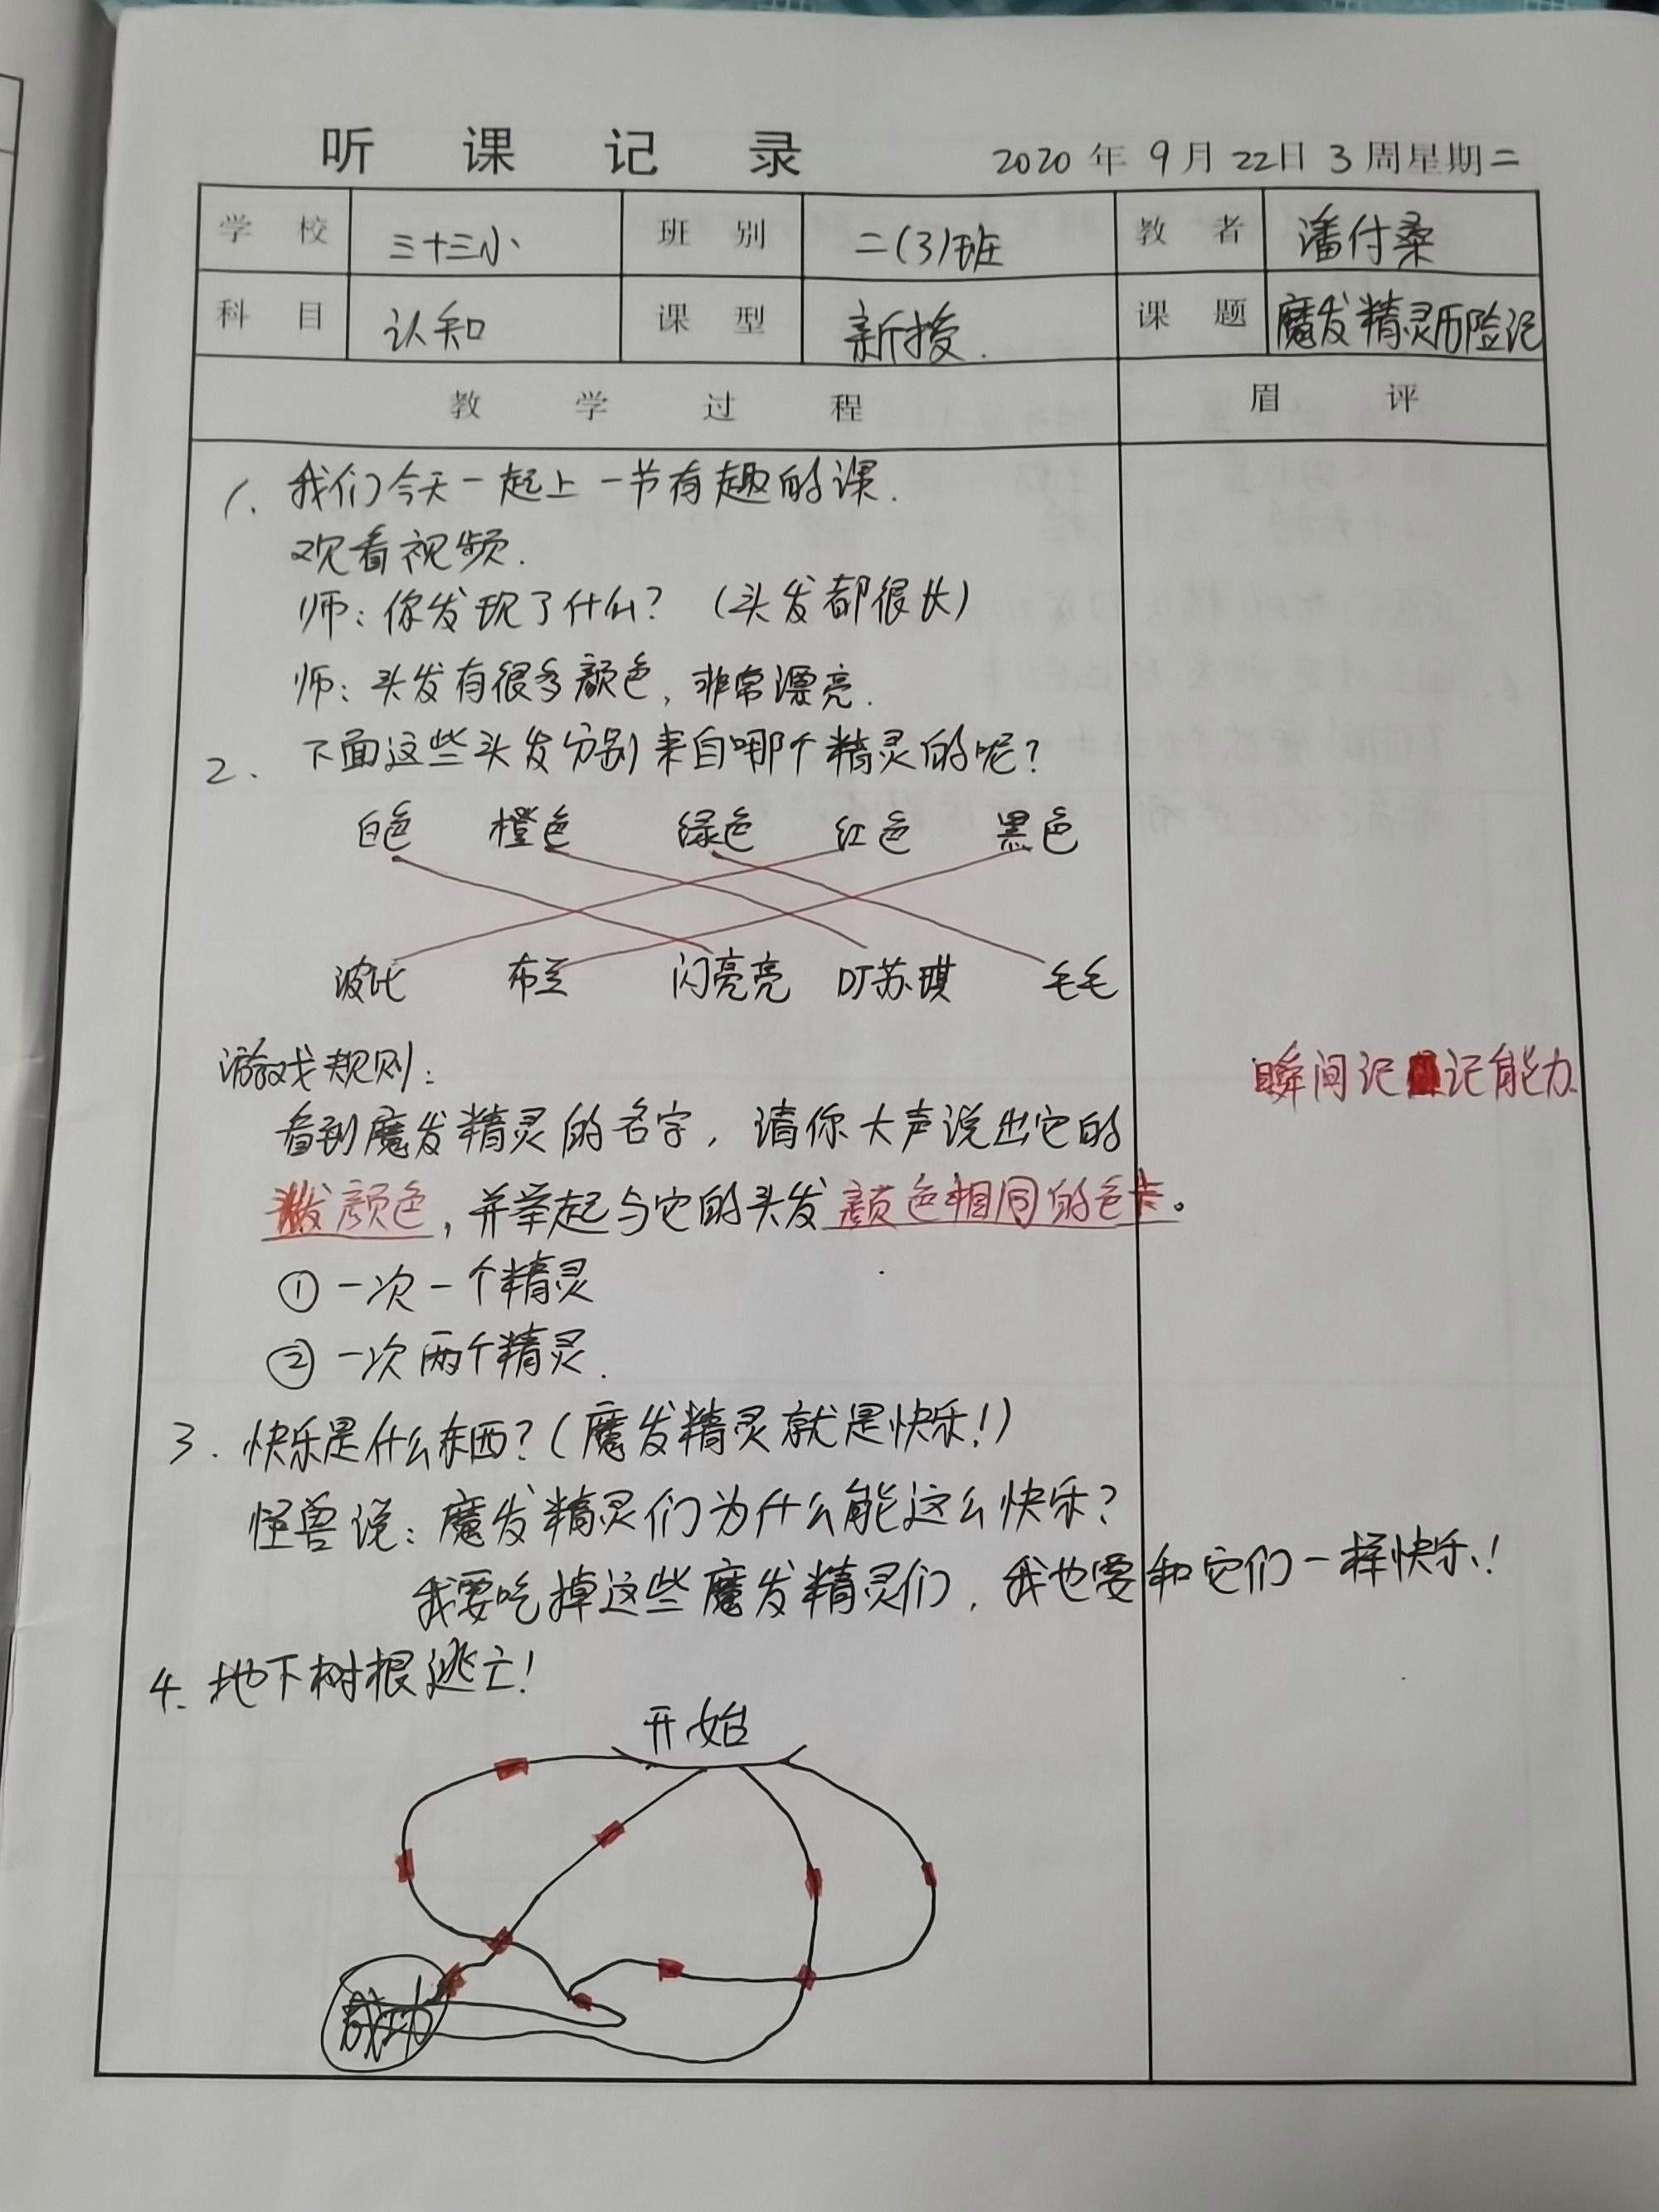 听课记录 2020年9月22日3周星期二
学校 三十三小 班别 二(3)班 教者 潘付桑
科目 认知 课型 新授. 课题 魔发精灵历险记
教学过程 眉评
1. 我们今天一起上一节有趣的课.
观看视频.
师:你发现了什么?(头发都很长)
师:头发有很多颜色,非常漂亮.
2. 下面这些头发分别来自哪个精灵的呢?
白色 橙色 绿色 红色 黑色
波比 布兰 闪亮亮 DJ苏琪 毛毛
游戏规则:
瞬间记记能力.
看到魔发精灵的名字,请你大声说出它的
头发颜色,并举起与它的头发颜色相同的色卡。
①一次一个精灵
②一次两个精灵.
3. 快乐是什么东西?(魔发精灵就是快乐!)
怪兽说:魔发精灵们为什么能这么快乐?
我要吃掉这些魔发精灵们,我也要和它们一样快乐!
4. 地下树根逃亡!
开始
成功